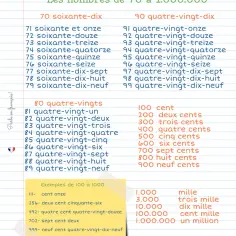 Les nombres de 70 à 1.000.000
70 soixante-dix
71 soixante et onze
72 soixante-douze
73 soixante-treize
74 soixante-quatorze
75 soixante-quinze
76 soixante-seize
77 soixante-dix-sept
78 soixante-dix-huit
79 soixante-dix-neuf
90 quatre-vingt-dix
91 quatre-vingt-onze
92 quatre-vingt-douze
93 quatre-vingt-treize
94 quatre-vingt-quatorze
95 quatre-vingt-quinze
96 quatre-vingt-seize
97 quatre-vingt-dix-sept
98 quatre-vingt-dix-huit
99 quatre-vingt-dix-neuf
80 quatre-vingts
81 quatre-vingt-un
82 quatre-vingt-deux
83 quatre-vingt-trois
84 quatre-vingt-quatre
85 quatre-vingt-cinq
86 quatre-vingt-six
87 quatre-vingt-sept
88 quatre-vingt-huit
89 quatre-vingt-neuf
100 cent
200 deux cents
300 trois cents
400 quatre cents
500 cinq cents
600 six cents
700 sept cents
800 huit cents
900 neuf cents
Exemples de 100 à 1000
cent onze
256: deux cent cinquante-six
492: quatre cent quatre-vingt-douze
702: sept cent deux
999: neuf cent quatre-vingt-dix-neuf
1.000 mille
3.000 trois mille
10.000 dix mille
100.000 cent mille
1.000.000 un million